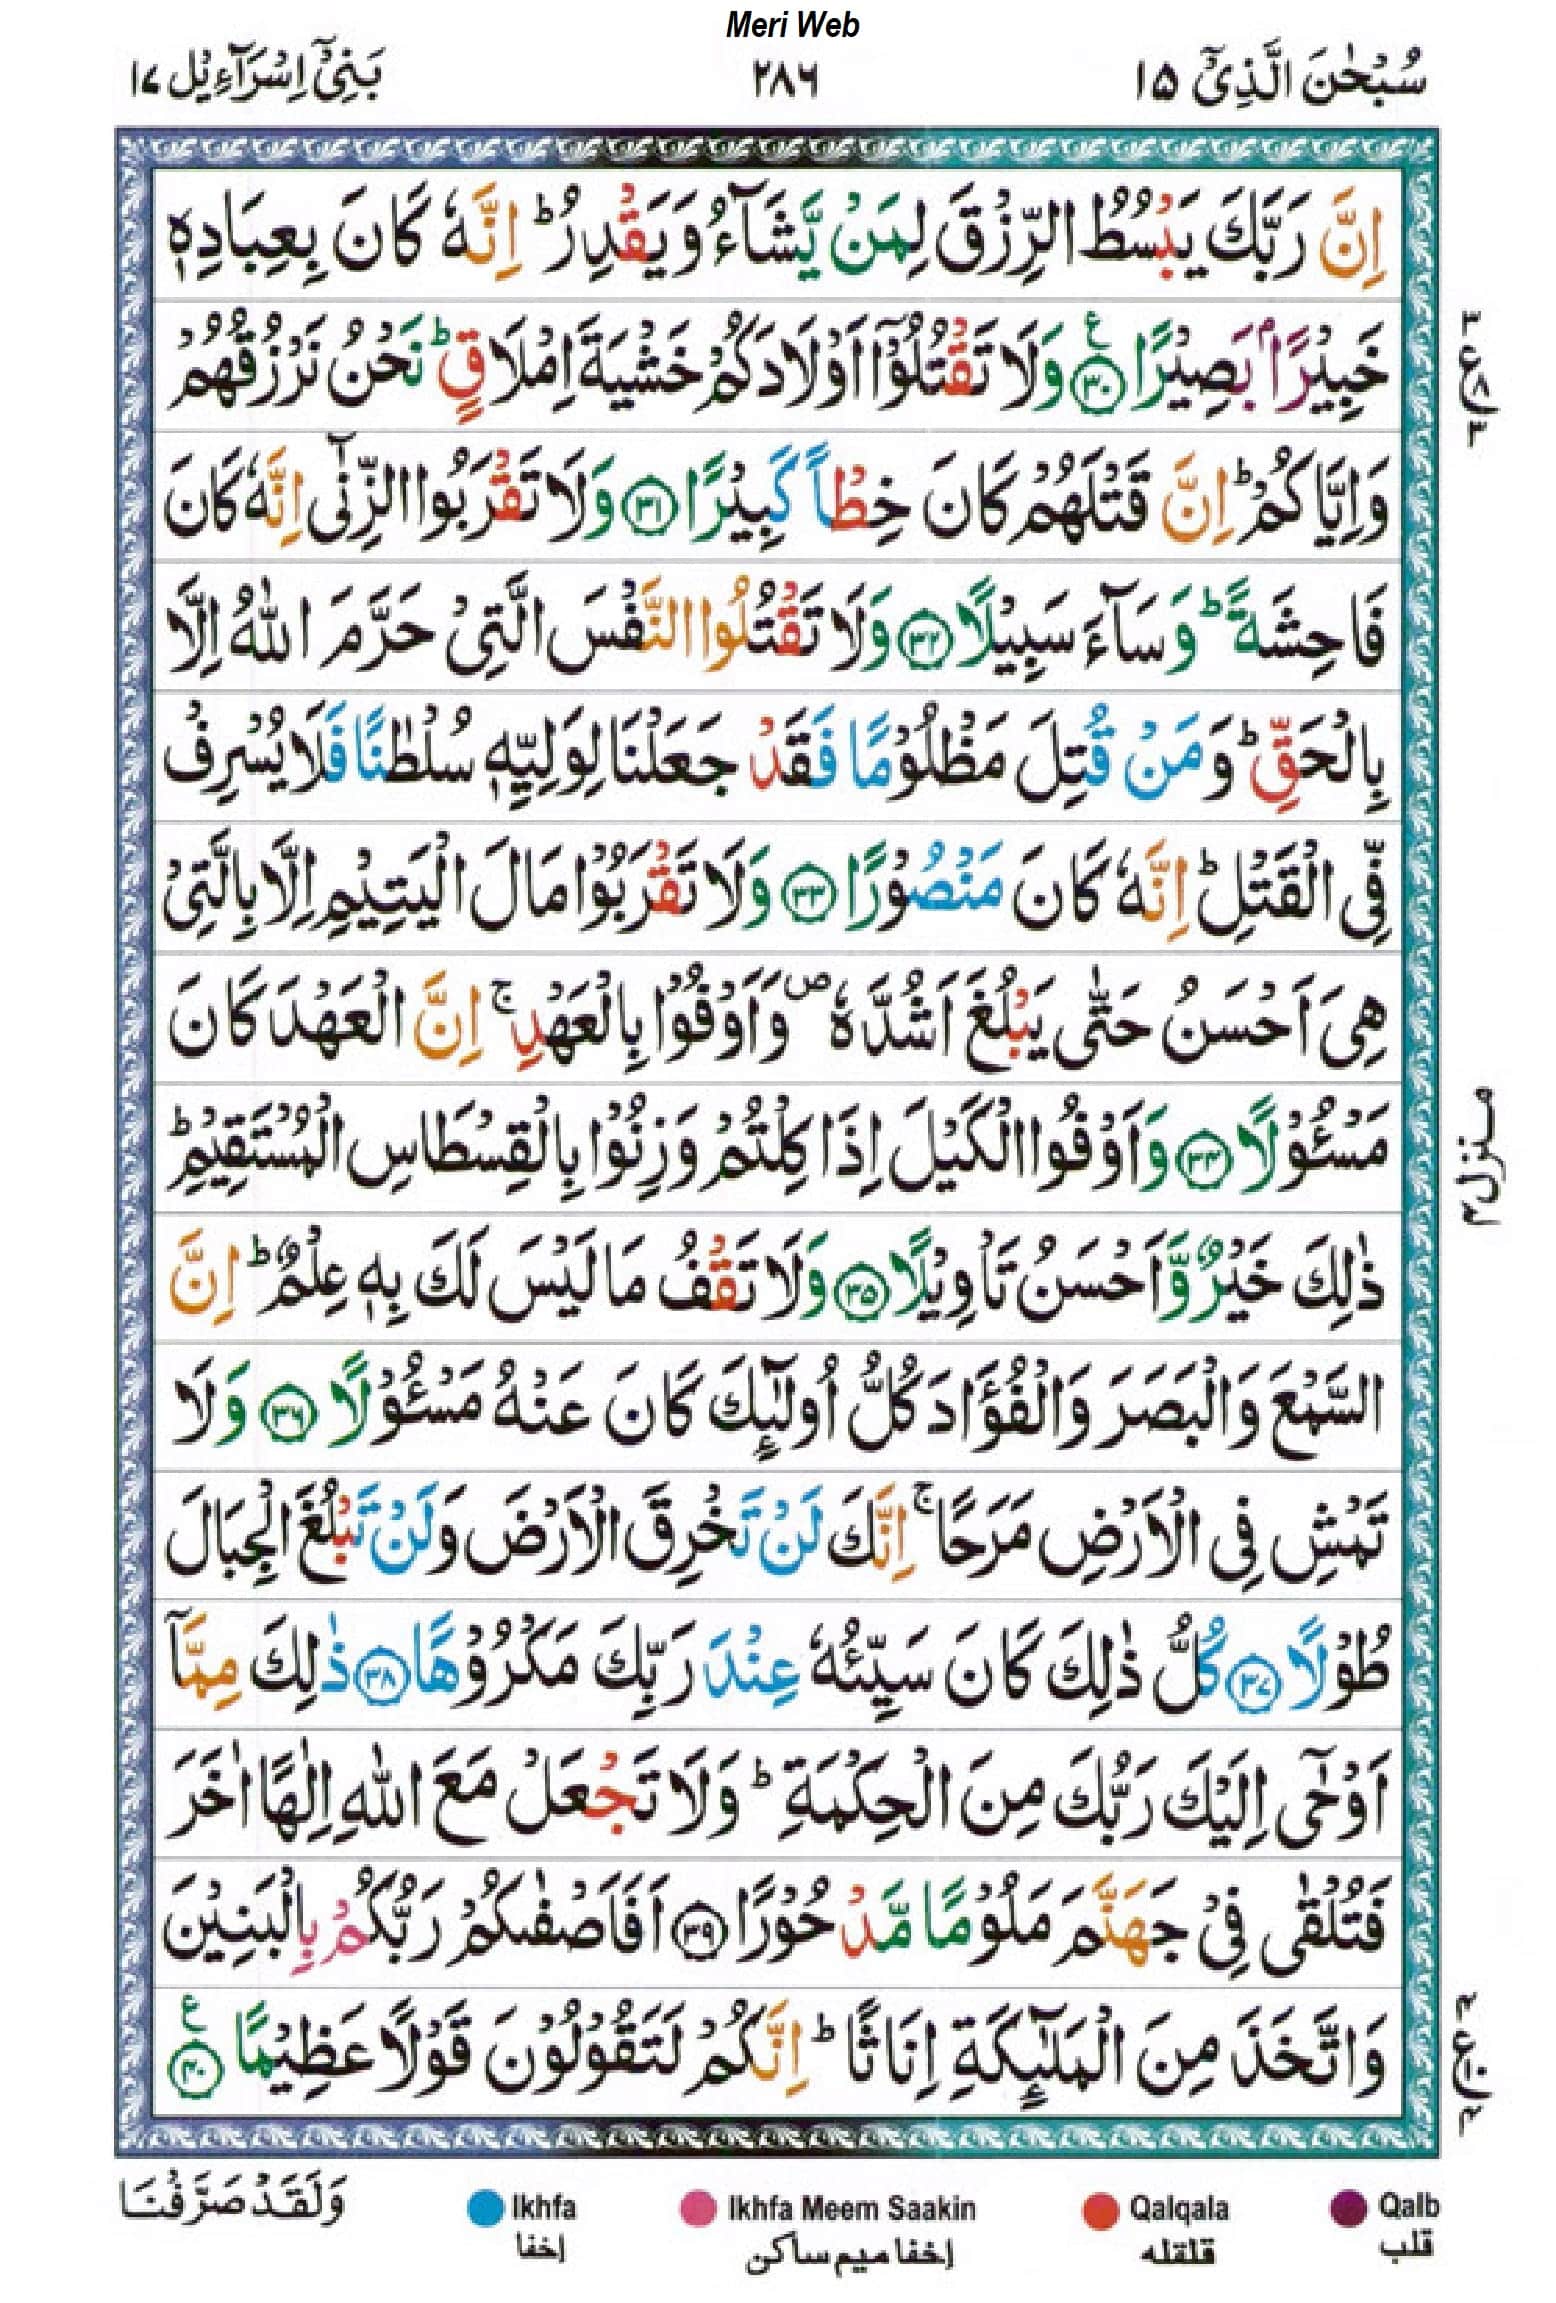 Meri Web
سُبْحٰنَ الَّذِیْۤ ۱۵
۲۸۶
بَنِیْۤ اِسْرَآءِیْل ۱۷
اِنَّ رَبَّكَ یَبْسُطُ الرِّزْقَ لِمَنْ یَّشَآءُ وَ یَقْدِرُ ؕ اِنَّهٗ كَانَ بِعِبَادِهٖ
خَبِیْرًۢا بَصِیْرًا ﴿۳۰﴾ ع وَ لَا تَقْتُلُوْۤا اَوْلَادَكُمْ خَشْیَةَ اِمْلَاقٍ ؕ نَحْنُ نَرْزُقُهُمْ
وَ اِیَّاكُمْ ؕ اِنَّ قَتْلَهُمْ كَانَ خِطْاً كَبِیْرًا ﴿۳۱﴾ وَ لَا تَقْرَبُوا الزِّنٰۤی اِنَّهٗ كَانَ
فَاحِشَةً ؕ وَ سَآءَ سَبِیْلًا ﴿۳۲﴾ وَ لَا تَقْتُلُوا النَّفْسَ الَّتِیْ حَرَّمَ اللّٰهُ اِلَّا
بِالْحَقِّ ؕ وَ مَنْ قُتِلَ مَظْلُوْمًا فَقَدْ جَعَلْنَا لِوَلِیِّهٖ سُلْطٰنًا فَلَا یُسْرِفْ
فِّی الْقَتْلِ ؕ اِنَّهٗ كَانَ مَنْصُوْرًا ﴿۳۳﴾ وَ لَا تَقْرَبُوْا مَالَ الْیَتِیْمِ اِلَّا بِالَّتِیْ
هِیَ اَحْسَنُ حَتّٰی یَبْلُغَ اَشُدَّهٗ ۪ وَ اَوْفُوْا بِالْعَهْدِ ۚ اِنَّ الْعَهْدَ كَانَ
مَسْئُوْلًا ﴿۳۴﴾ وَ اَوْفُوا الْكَیْلَ اِذَا كِلْتُمْ وَ زِنُوْا بِالْقِسْطَاسِ الْمُسْتَقِیْمِ ؕ
ذٰلِكَ خَیْرٌ وَّ اَحْسَنُ تَاْوِیْلًا ﴿۳۵﴾ وَ لَا تَقْفُ مَا لَیْسَ لَكَ بِهٖ عِلْمٌ ؕ اِنَّ
السَّمْعَ وَ الْبَصَرَ وَ الْفُؤَادَ كُلُّ اُولٰٓئِكَ كَانَ عَنْهُ مَسْئُوْلًا ﴿۳۶﴾ وَ لَا
تَمْشِ فِی الْاَرْضِ مَرَحًا ۚ اِنَّكَ لَنْ تَخْرِقَ الْاَرْضَ وَ لَنْ تَبْلُغَ الْجِبَالَ
طُوْلًا ﴿۳۷﴾ كُلُّ ذٰلِكَ كَانَ سَیِّئُهٗ عِنْدَ رَبِّكَ مَكْرُوْهًا ﴿۳۸﴾ ذٰلِكَ مِمَّاۤ
اَوْحٰۤی اِلَیْكَ رَبُّكَ مِنَ الْحِكْمَةِ ؕ وَ لَا تَجْعَلْ مَعَ اللّٰهِ اِلٰهًا اٰخَرَ
فَتُلْقٰی فِیْ جَهَنَّمَ مَلُوْمًا مَّدْحُوْرًا ﴿۳۹﴾ اَفَاَصْفٰىكُمْ رَبُّكُمْ بِالْبَنِیْنَ
وَ اتَّخَذَ مِنَ الْمَلٰٓئِكَةِ اِنَاثًا ؕ اِنَّكُمْ لَتَقُوْلُوْنَ قَوْلًا عَظِیْمًا ﴿۴۰﴾ ع
منزل ۴
وَلَقَدْ صَرَّفْنَا
Ikhfa
اِخفا
Ikhfa Meem Saakin
اِخفا میم ساکن
Qalqala
قلقله
Qalb
قلب